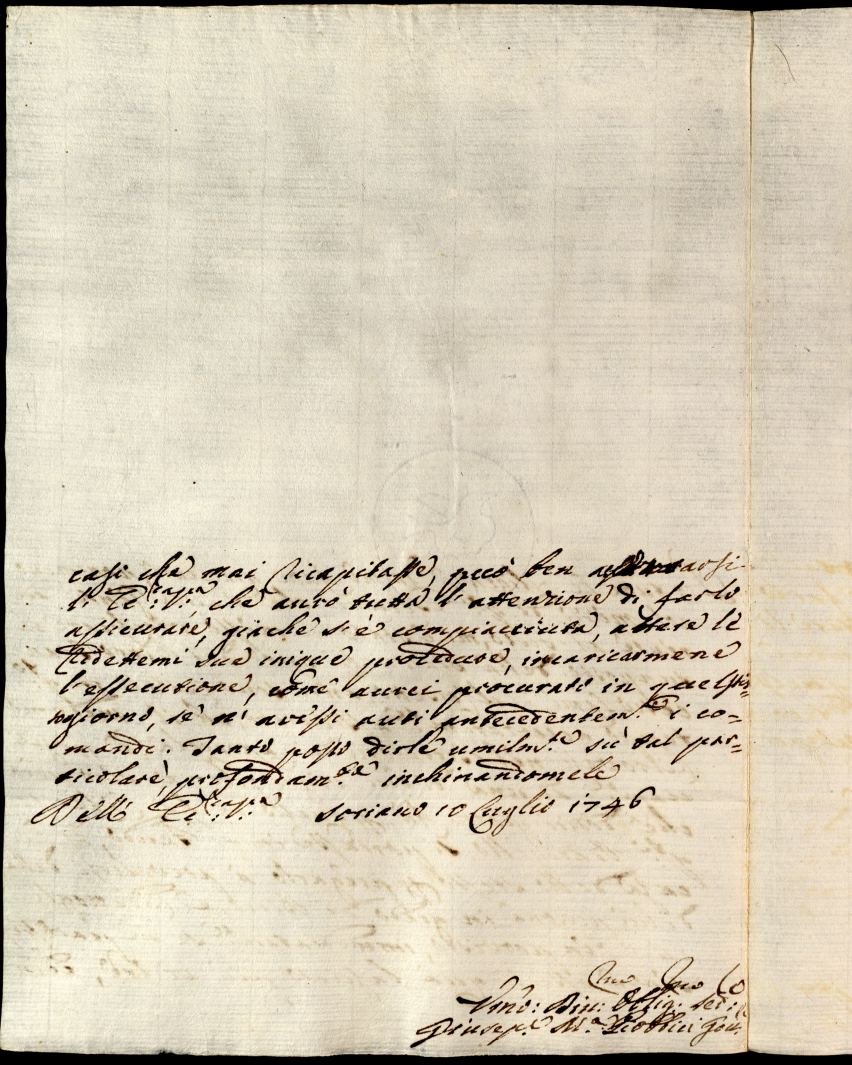 casi che mai ricapitasse, può ben assicurarsi
che aurò tutta l'attenzione di farlo
assicurare, giache s'è compiacciuta, attese le
redettemi sue inique procedure, incaricarmene
l'essecuzione, come aurei procurato in quel
giorno, se n'avessi auti antecedentem.te i co=
mandi. Tanto posso dirle umilm.te sù tal par=
ticolare, profondam.te inchinandomele
Soriano 10 Luglio 1746
Umo: Div: Oblig: Ser:
Giusep.e M.a Gov: